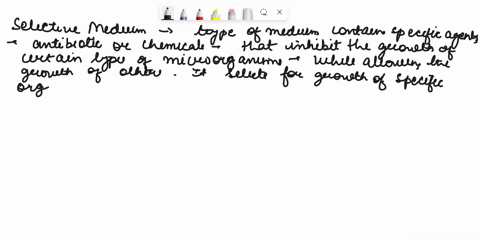 Selective Medium → type of medium contain specific agents
→ antibiotic or chemicals → that inhibit the growth of
certain type of microorganism → while allowing the
growth of other. It selects for growth of specific
org